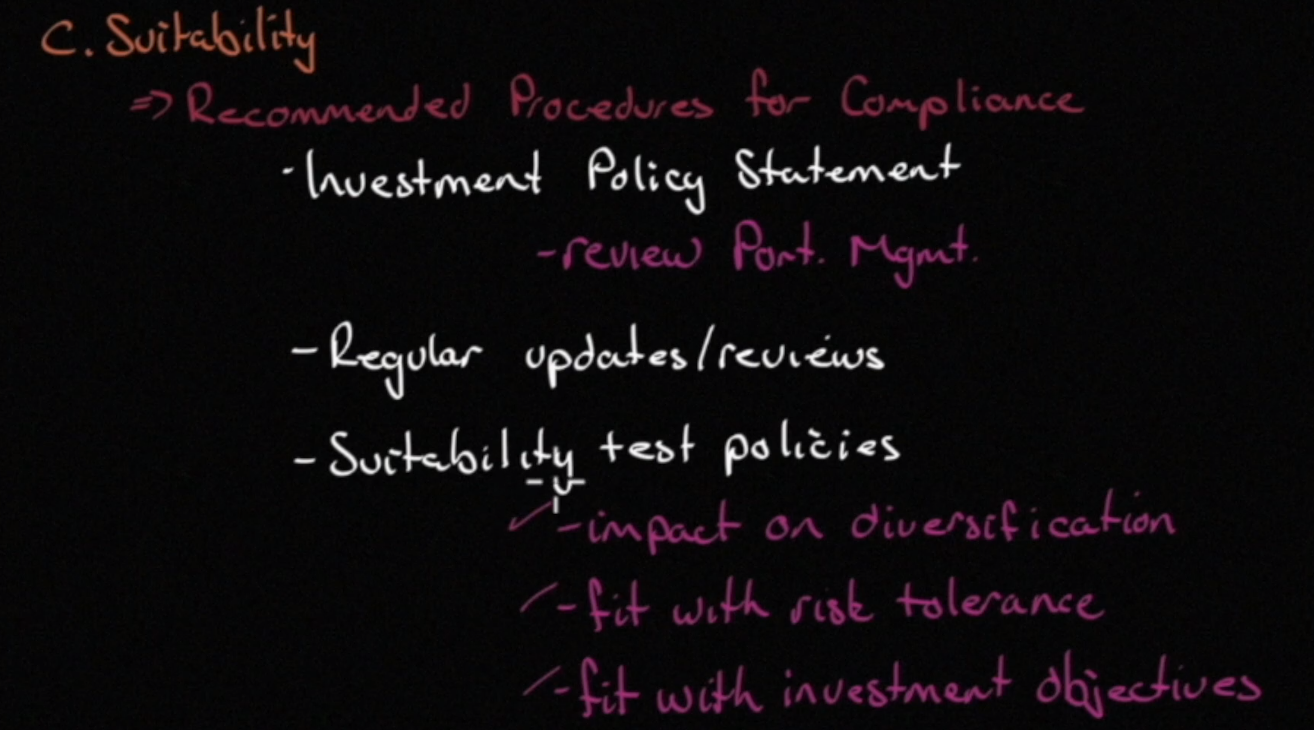 C. Suitability
=> Recommended Procedures for Compliance
· Investment Policy Statement
- review Port. Mgmt.
- Regular updates/reviews
- Suitability test policies
- impact on diversification
- fit with risk tolerance
- fit with investment objectives